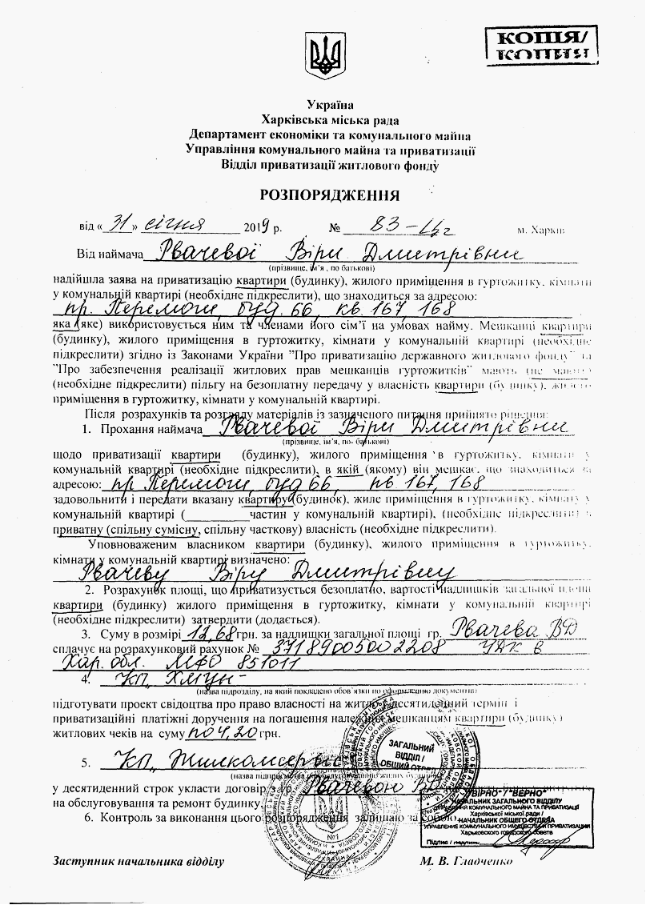 КОПІЯ/
КОПИЯ
Україна
Харківська міська рада
Департамент економіки та комунального майна
Управління комунального майна та приватизації
Відділ приватизації житлового фонду
РОЗПОРЯДЖЕННЯ
від « 31 » січня 2019 р. № 83- м. Харків
Від наймача Рвачевої Віри Дмитрівни
(прізвище, ім'я, по батькові)
надійшла заява на приватизацію квартири (будинку), жилого приміщення в гуртожитку, кімнати
у комунальній квартирі (необхідне підкреслити), що знаходиться за адресою:
пр. Перемоги, буд. 66, кв. 167, 168
яка (яке) використовується ним та членами його сім'ї на умовах найму. Мешканці квартири
(будинку), жилого приміщення в гуртожитку, кімнати у комунальній квартирі (необхідне
підкреслити) згідно із Законами України "Про приватизацію державного житлового фонду" та
"Про забезпечення реалізації житлових прав мешканців гуртожитків" мають (не мають)
(необхідне підкреслити) пільгу на безоплатну передачу у власність квартири (будинку), жилого
приміщення в гуртожитку, кімнати у комунальній квартирі.
Після розрахунків та розгляду матеріалів із зазначеного питання прийнято рішення:
1. Прохання наймача Рвачевої Віри Дмитрівни
(прізвище, ім'я, по- батькові)
щодо приватизації квартири (будинку), жилого приміщення в гуртожитку, кімнати у
комунальній квартирі (необхідне підкреслити), в якій (якому) він мешкає, що знаходиться за
адресою: пр. Перемоги, буд 66 кв 167, 168
задовольнити і передати вказану квартиру (будинок), жиле приміщення в гуртожитку, кімнату у
комунальній квартирі (_________ частин у комунальній квартирі), (необхідне підкреслити) в
приватну (спільну сумісну, спільну часткову) власність (необхідне підкреслити).
Уповноваженим власником квартири (будинку), жилого приміщення в гуртожитку,
кімнати у комунальній квартирі визначено:
Рвачеву Віру Дмитрівну
2. Розрахунок площі, що приватизується безоплатно, вартості надлишків загальної площі
квартири (будинку) жилого приміщення в гуртожитку, кімнати у комунальній квартирі
(необхідне підкреслити) затвердити (додається).
3. Суму в розмірі 12,68 грн. за надлишки загальної площі гр. Рвачева ВД
сплачує на розрахунковий рахунок № 37189005002208 УДК в
Хар. обл. МФО 851011
4. КП,
(назва підрозділу, на який покладено обов'язки по оформленню документів)
підготувати проект свідоцтва про право власності на житло у десятиденний термін і
приватизаційні платіжні доручення на погашення належної мешканцям квартири (будинку)
житлових чеків на суму по 4,20 грн.
5. КП,, Жилкомсервіс
у десятиденний строк укласти договір з гр. Рвачевою ВД
на обслуговування та ремонт будинку.
6. Контроль за виконання цього розпорядження залишаю за собою.
ЗАГАЛЬНИЙ
ВІДДІЛ /
ОБЩИЙ ОТДЕЛ
№1
"ВІРНО" / "ВЕРНО"
НАЧАЛЬНИК ЗАГАЛЬНОГО ВІДДІЛУ
УПРАВЛІННЯ КОМУНАЛЬНОГО МАЙНА ТА ПРИВАТИЗАЦІЇ
Харківської міської ради /
НАЧАЛЬНИК ОБЩЕГО ОТДЕЛА
УПРАВЛЕНИЕ КОММУНАЛЬНОГО ИМУЩЕСТВА И ПРИВАТИЗАЦИИ
Харьковского городского совета
Підпис / подпись
Заступник начальника відділу М. В. Гладченко